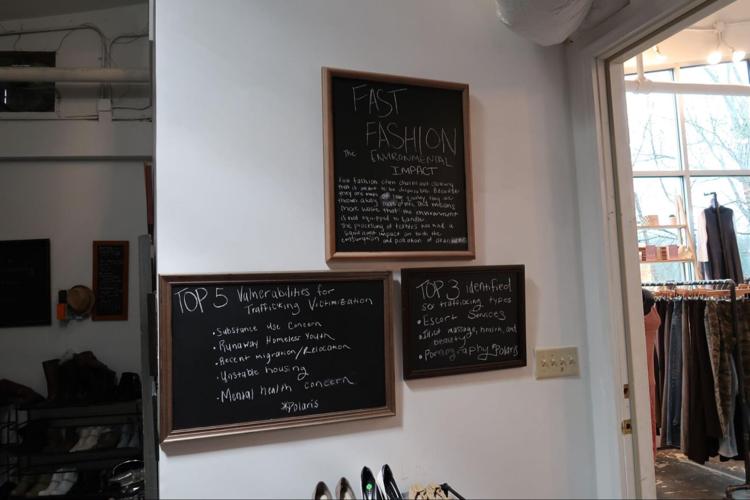 FAST
FASHION
The ENVIRONMENTAL
IMPACT
Fast fashion often churns out clothing
that is meant to be disposable. Because
they are made of low quality they are
thrown away more often and means
more waste that the environment
is not equipped to handle.
The processing of textiles has had a
significant impact on both the
consumption and pollution of
TOP 5 Vulnerabilities for
Trafficking Victimization
• Substance Use Concern
• Runaway Homeless Youth
• Recent migration/Relocation
• Unstable housing
• Mental health Concern
*Polaris
TOP 3 identified
sex trafficking types
• Escort Services
• Illicit massage, health, and
beauty
• Pornography *Polaris